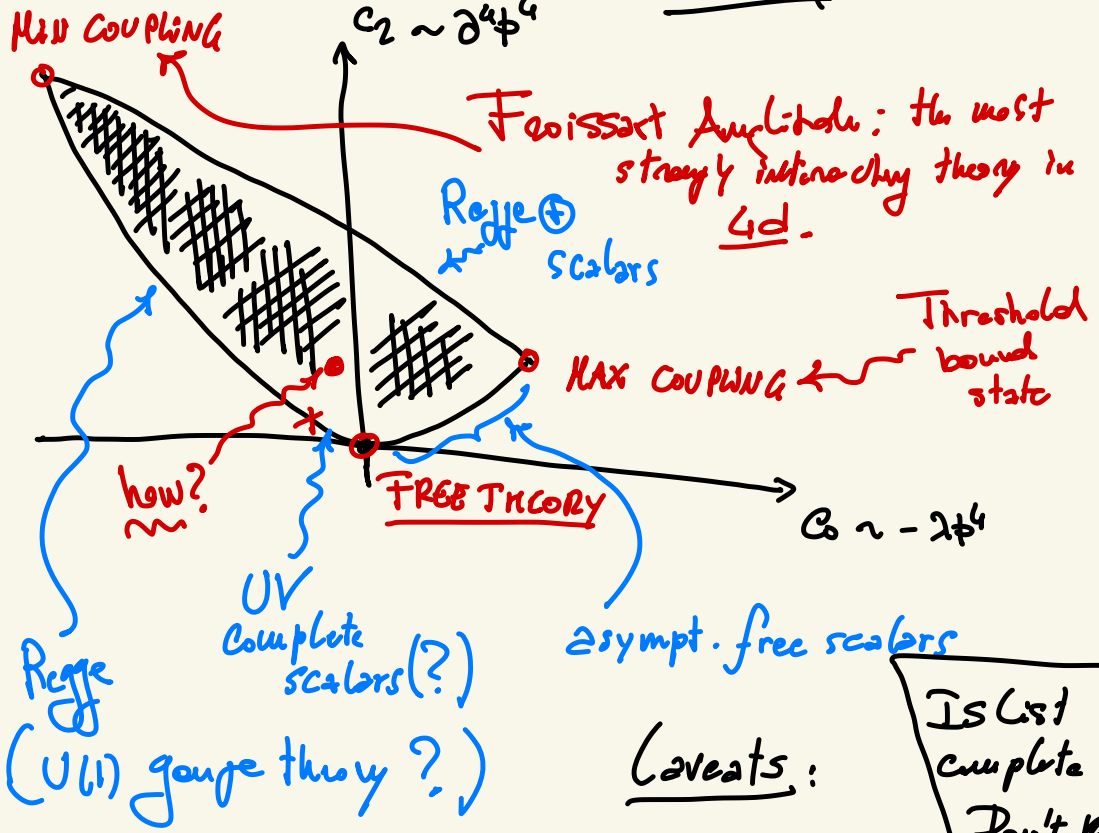 MIN COUPLING
C₂ ~ ∂⁴φ⁴
Froissart Amplitude: the most
strongly interacting theory in
4d.
Regge ⊕
scalars
Threshold
bound
state
MAX COUPLING
how?
FREE THEORY
C₀ ~ -λφ⁴
UV
complete
scalars (?)
asympt. free scalars
Regge
(U(1) gauge theory ?)
Caveats:
Is list
complete
Don't